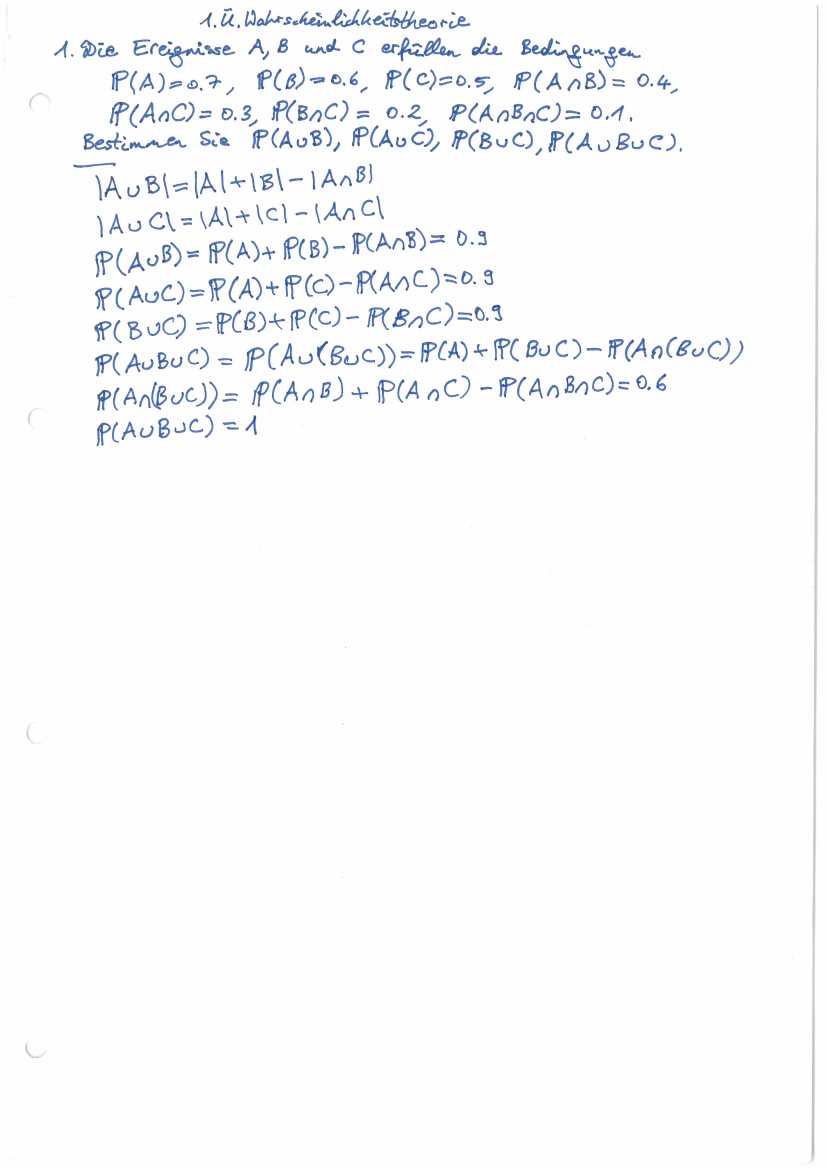 1. Ü. Wahrscheinlichkeitstheorie
1. Die Ereignisse A, B und C erfüllen die Bedingungen
ℙ(A)=0.7, ℙ(B)=0.6, ℙ(C)=0.5, ℙ(A∩B)=0.4,
ℙ(A∩C)=0.3, ℙ(B∩C)=0.2, ℙ(A∩B∩C)=0.1.
Bestimmen Sie ℙ(A∪B), ℙ(A∪C), ℙ(B∪C), ℙ(A∪B∪C).
|A∪B|=|A|+|B|-|A∩B|
|A∪C|=|A|+|C|-|A∩C|
ℙ(A∪B)=ℙ(A)+ℙ(B)-ℙ(A∩B)=0.9
ℙ(A∪C)=ℙ(A)+ℙ(C)-ℙ(A∩C)=0.9
ℙ(B∪C)=ℙ(B)+ℙ(C)-ℙ(B∩C)=0.9
ℙ(A∪B∪C)=ℙ(A∪(B∪C))=ℙ(A)+ℙ(B∪C)-ℙ(A∩(B∪C))
ℙ(A∩(B∪C))=ℙ(A∩B)+ℙ(A∩C)-ℙ(A∩B∩C)=0.6
ℙ(A∪B∪C)=1